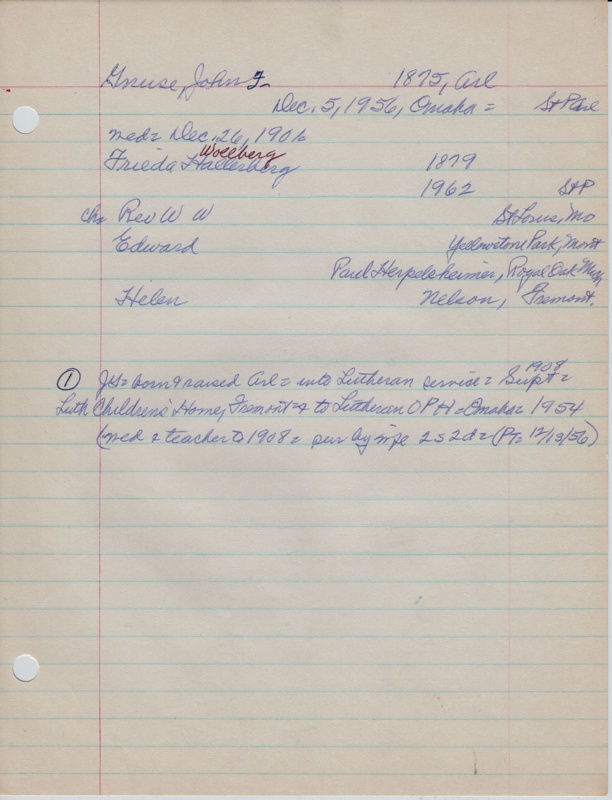 Gnuse, John F 1875, Arl
Dec. 5, 1956, Omaha = St P Arl
med = Dec. 26, 1906
Wollberg
Frieda Hallerberg 1879
1962 St P
ch = Rev W W St Louis, Mo
Edward Yellowstone Park, Mont
Paul Herpelsheimer, Royal Oak Mich
Helen Nelson, Fremont.
1908
① JG = born & raised Arl = into Lutheran service = Supt =
Luth Children's Home, Fremont = & to Lutheran O P H = Omaha = 1954
(med & teacher to 1908 = sur by wife 2 s 2 d = (PT = 12/13/56)